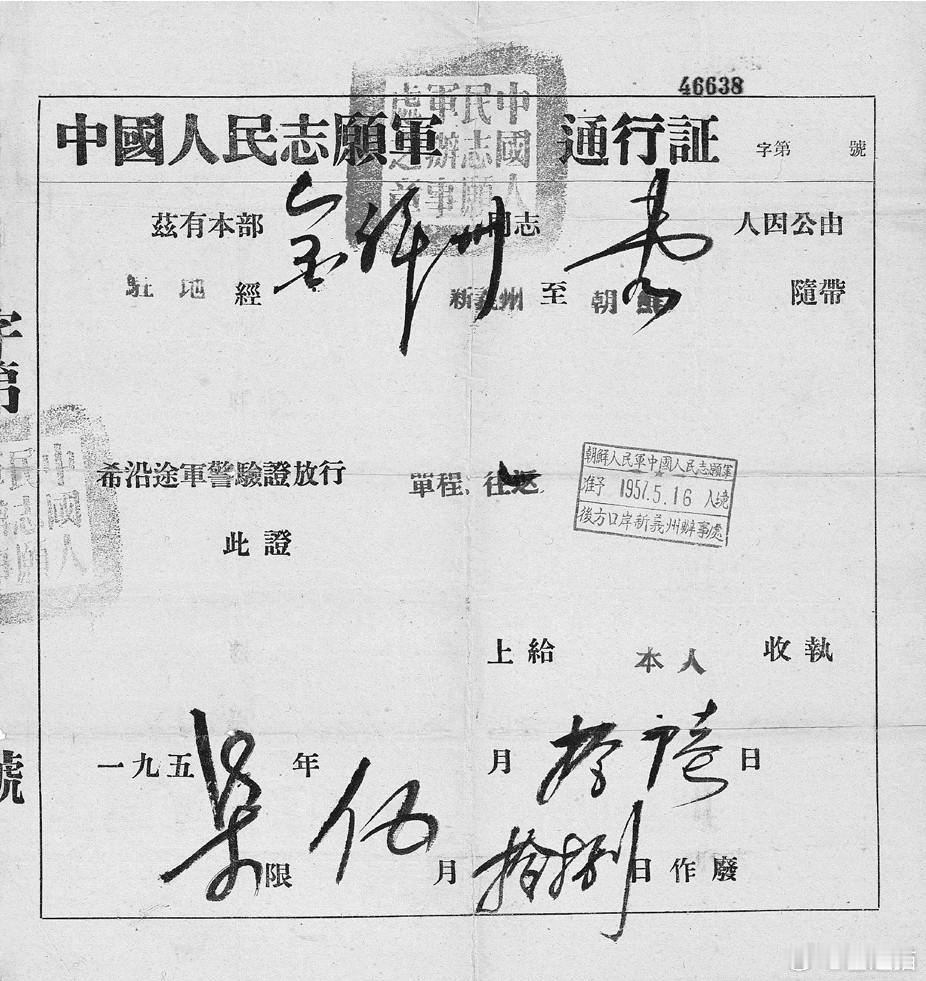 46638
中國人民志願軍 通行証 字第 號
中國人民志願軍辦事處之章
茲有本部 同志 人因公由
駐地 經 新義州 至 朝鮮 隨帶
字第
希沿途軍警驗證放行 單程、往返
此證
朝鮮人民軍中國人民志願軍
准予 1957.5.16 入境
後方口岸新義州辦事處
上給 本人 收執
一九五柒年伍月拾陸日
限 月拾捌日作廢
號